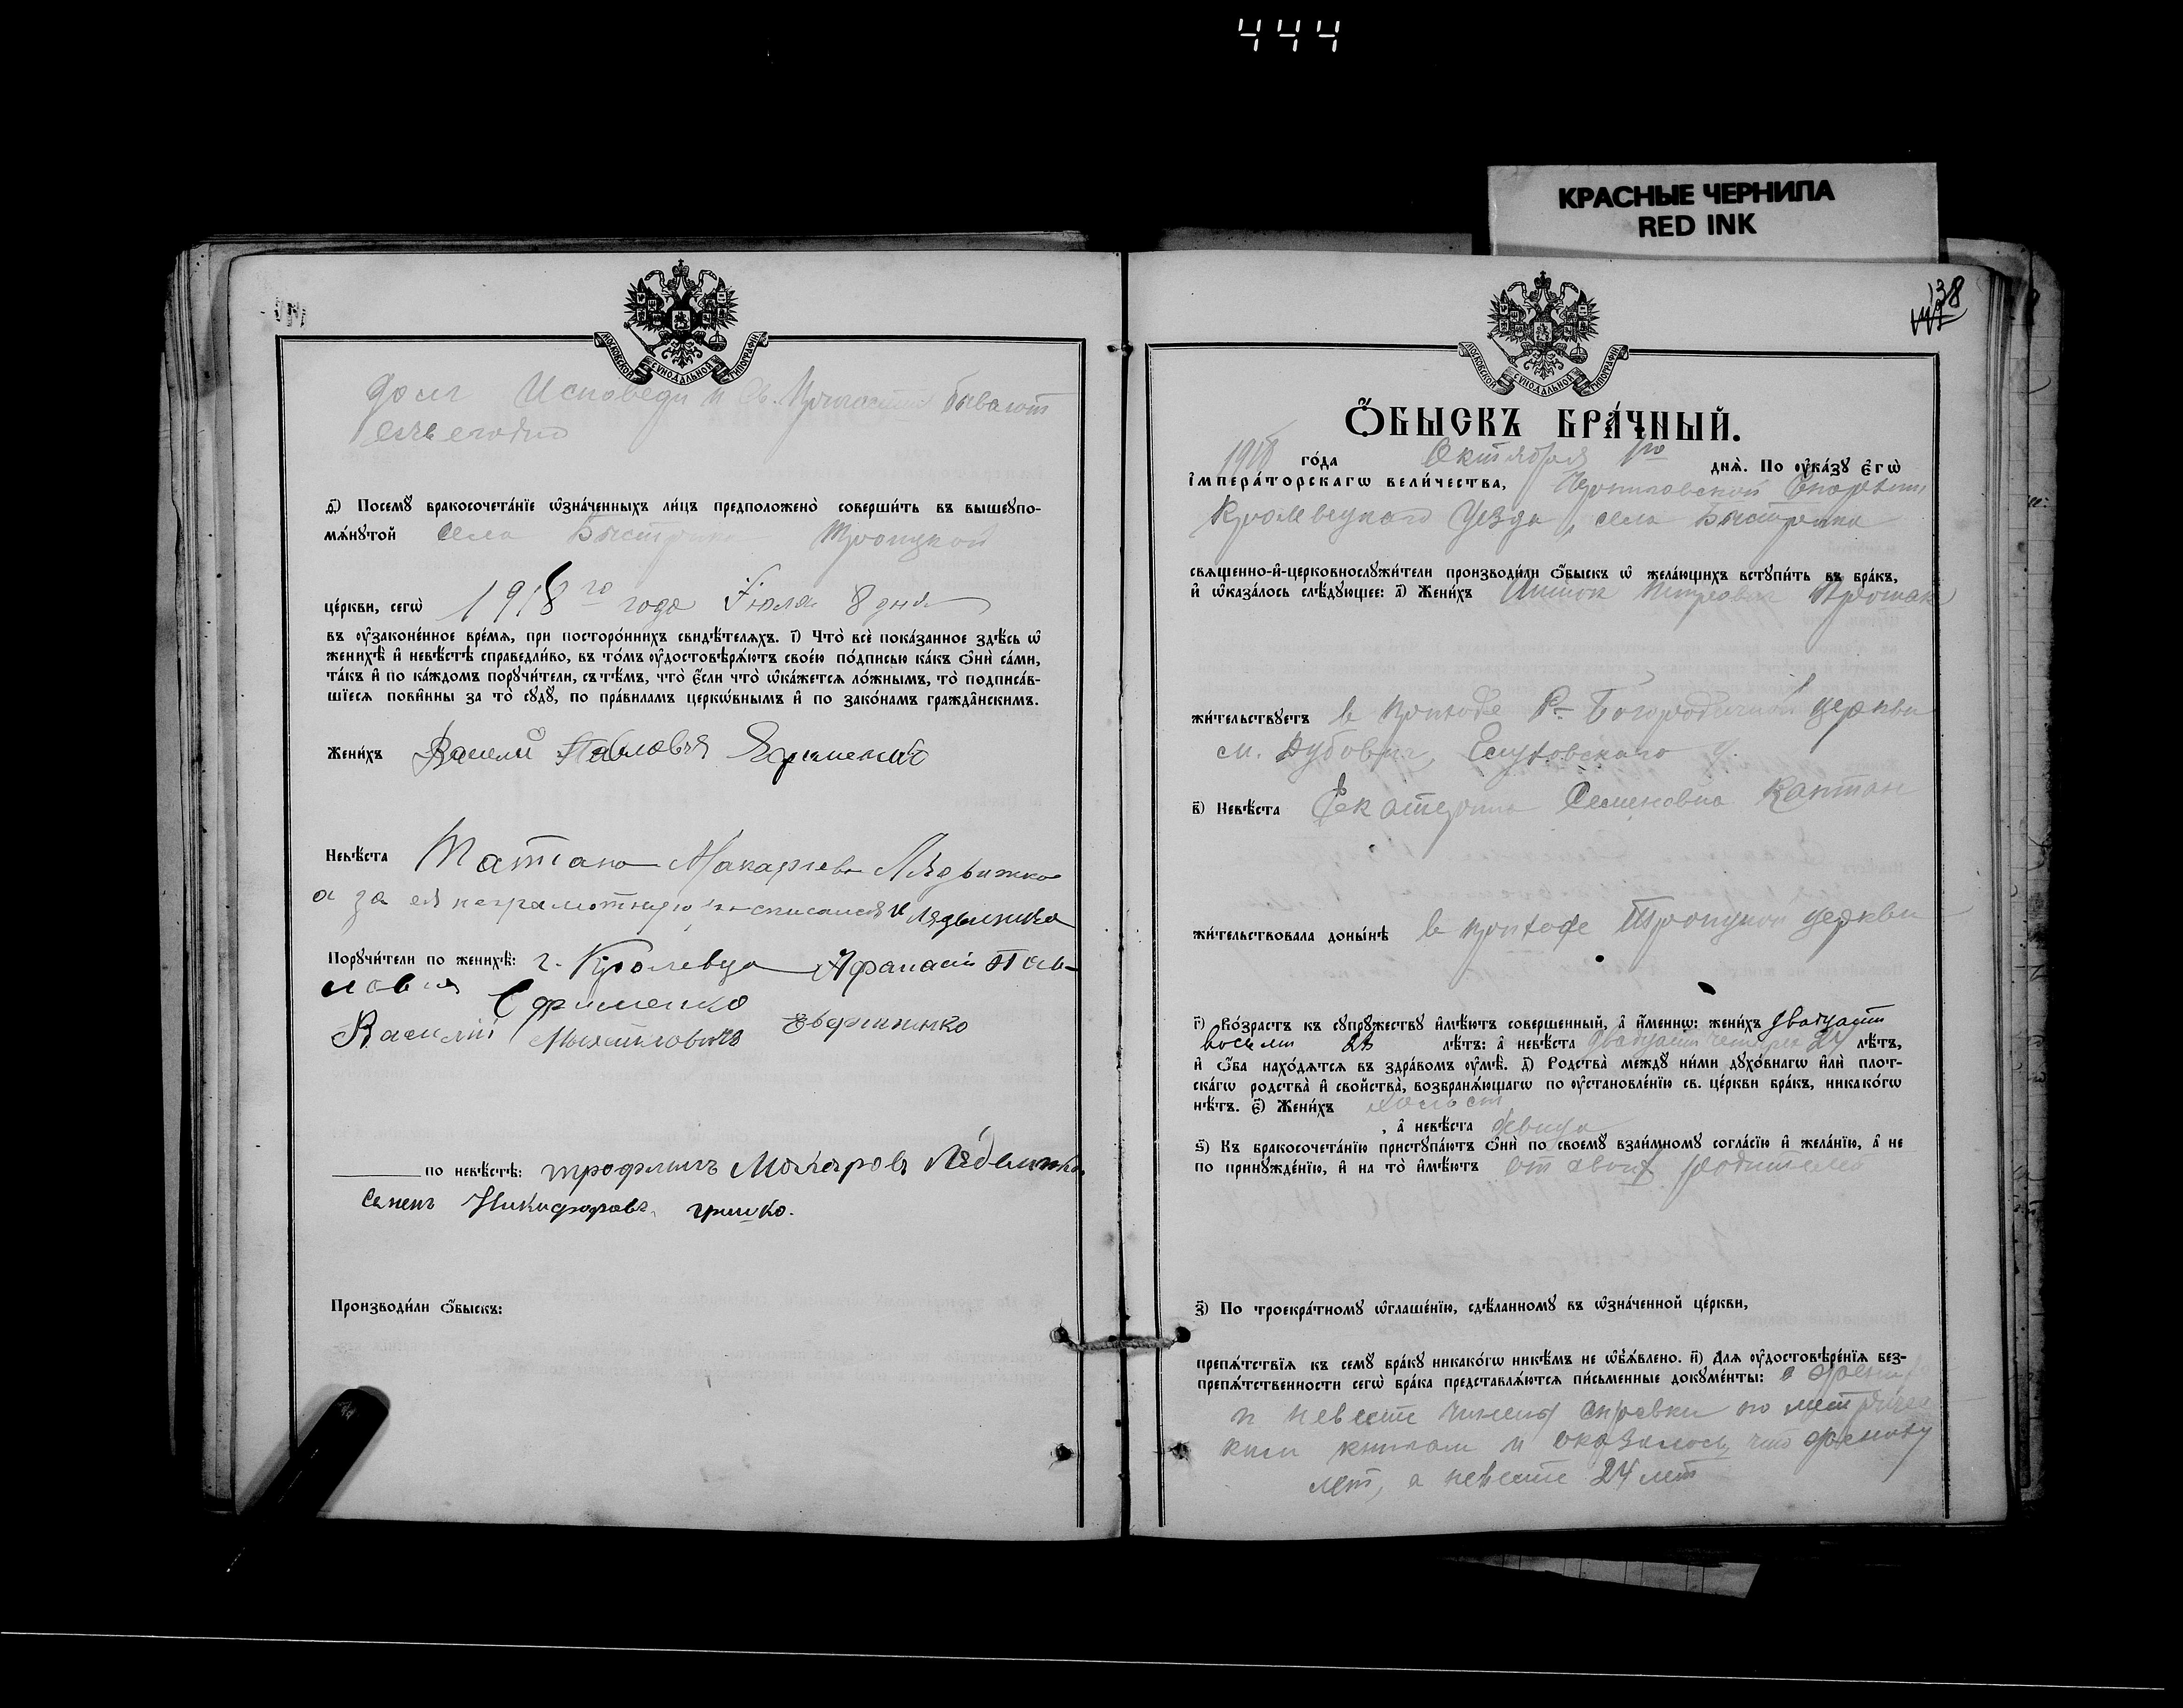 444
КРАСНЫЕ ЧЕРНИЛА
RED INK
МОСКОВСКОЙ СѴНОДАЛЬНОЙ ТИПОГРАФІИ
долг Исповеди и Св. Причастия бывают
ежегодно
д҃) Посемꙋ бракосочета́нїе ѡ҆зна́ченныхъ ли́цъ предположено̀ соверши́ть въ вышеꙋпо-
мѧ́нꙋтой села Быстрика Троицкой
це́ркви, сегѡ̀ 1918 го года Іюля 8 дня
въ ᲂу҆зако́ненное вре́мѧ, при посторо́ннихъ свидѣ́телѧхъ. і҃) Что̀ всѐ пока́занное здѣ́сь ѡ҆
женихѣ̀ и҆ невѣ́стѣ справедли́во, въ то́мъ ᲂу҆достовѣрѧ́ютъ свое́ю по́дписью ка́къ ѻ҆нѝ са́ми,
та́къ и҆ по ка́ждомъ порꙋчи́тели, съ тѣ́мъ, что̀ є҆́сли что̀ ѡ҆ка́жетсѧ ло́жнымъ, то̀ подписа́в-
шїесѧ пови́нны за то̀ сꙋдꙋ̀, по пра́виламъ церкѡ́внымъ и҆ по зако́намъ гражда̑нскимъ.
Жени́хъ Василій Павловъ
Невѣ́ста Татіана Макарiева Лядышка
а за ея неграмотную росписался Лядышка
Порꙋчи́тели по женихѣ̀: г. Кролевца Афанасій Пав-
ловъ Ефименко
Василій
по невѣ́стѣ: трофимъ Макаровъ
Семенъ Никифоровъ гришко.
Производи́ли ѻ҆́быскъ:
138
МОСКОВСКОЙ СѴНОДАЛЬНОЙ ТИПОГРАФІИ
Ѻ҆́БЫСКЪ БРА́ЧНЫЙ.
1918 го́да Октября 1го днѧ̀. По ᲂу҆ка́зꙋ є҆гѡ̀
і҆мпера́торскагѡ вели́чества, Черниговской Епархии
Кролевецкого Уезда, села Быстрика
свѧщенно-и҆-церковнослꙋжи́тели производи́ли ѻ҆́быскъ ѡ҆ жела́ющихъ встꙋпи́ть въ бра́къ,
и҆ ѡ҆каза́лось слѣ́дꙋющее: а҃) Жени́хъ Петрович
жи́тельствꙋетъ в приходе Р. Богородичной церкви
м. Дубович, Глуховского у.
в҃) Невѣ́ста Екатерина Семеновна Каптан
жи́тельствовала доны́нѣ в приходе Троицкой церкви
г҃) Во́зрастъ къ сꙋпрꙋ́жествꙋ и҆мѣ́ютъ соверше́нный, а҆ и҆́меннѡ: жени́хъ двадцати
восьми 28 лѣ́тъ: а҆ невѣ́ста двадцати четырех 24 лѣ́тъ,
и҆ ѻ҆́ба нахо́дѧтсѧ въ здра́вомъ ᲂу҆мѣ̀. д҃) Родства̀ междꙋ̀ ни́ми дꙋхо́внагѡ и҆лѝ плот-
ска́гѡ родства̀ и҆ сво́йства, возбранѧ́ющагѡ по ᲂу҆становле́нїю св. це́ркви бра́къ, никако́гѡ
нѣ́тъ. є҃) Жени́хъ холост
, а҆ невѣ́ста девица
ѕ҃) Къ бракосочета́нїю пристꙋпа́ютъ ѻ҆нѝ по своемꙋ̀ взаи́мномꙋ согла́сїю и҆ жела́нїю, а҆ не
по принꙋжде́нїю, и҆ на то̀ и҆мѣ́ютъ от своих родителей
з҃) По троекра́тномꙋ ѡ҆глаше́нїю, сдѣ́ланномꙋ въ ѡ҆зна́ченной це́ркви,
препѧ́тствїѧ къ семꙋ̀ бра́кꙋ никако́гѡ никѣ́мъ не ѡ҆б̾ѧ́влено. и҃) Длѧ ᲂу҆достовѣре́нїѧ без-
препѧ́тственности сегѡ̀ бра́ка представлѧ́ютсѧ пи́сьменные докꙋме́нты: о
и невесте справки по метричес
ким книгам и оказалось, что жениху
лет, а невесте 24 лет